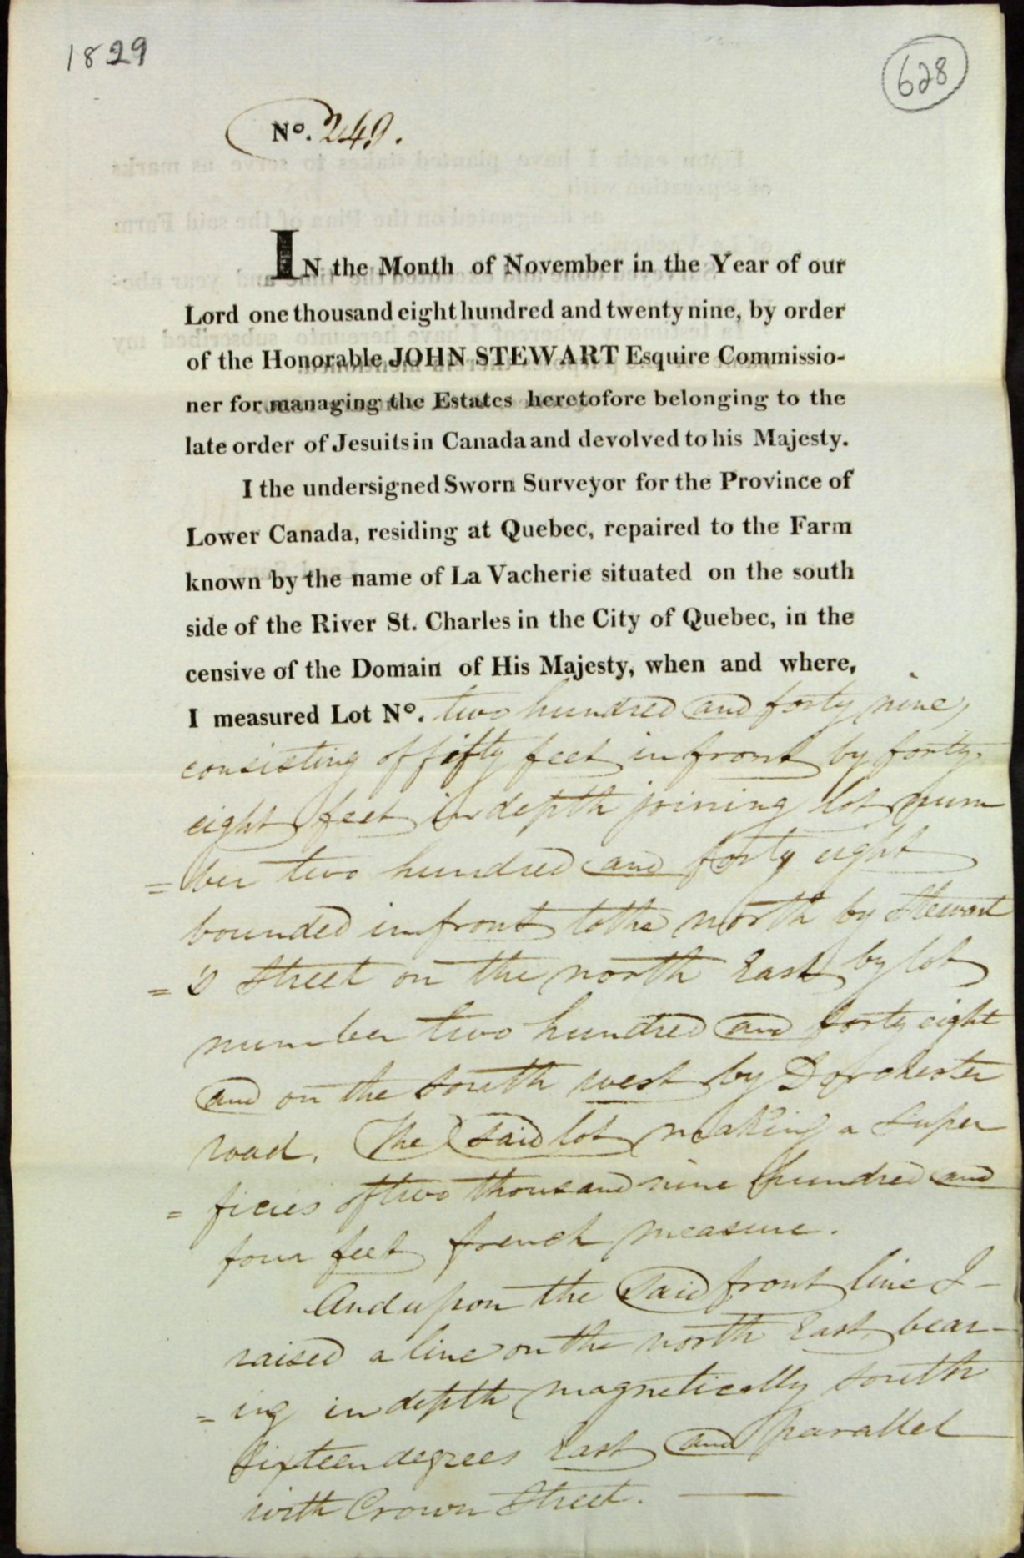 1829
628
No. 249.
IN the Month of November in the Year of our
Lord one thousand eight hundred and twenty nine, by order
of the Honorable JOHN STEWART Esquire Commissio-
ner for managing the Estates heretofore belonging to the
late order of Jesuits in Canada and devolved to his Majesty.
I the undersigned Sworn Surveyor for the Province of
Lower Canada, residing at Quebec, repaired to the Farm
known by the name of La Vacherie situated on the south
side of the River St. Charles in the City of Quebec, in the
censive of the Domain of His Majesty, when and where,
I measured Lot No. two hundred and forty nine,
consisting of fifty feet in front by forty
eight feet in depth joining lot num
= ber two hundred and forty eight
bounded in front to the north by Stewart
= 's Street on the north East by lot
number two hundred and forty eight
and on the south west by Dorchester
road. The said lot making a super
= ficies of two thousand nine hundred and
four feet french measure.
And upon the said front line I
raised a line on the north East, bear-
= ing in depth magnetically south
fifteen degrees East and parallel
with Crown Street.